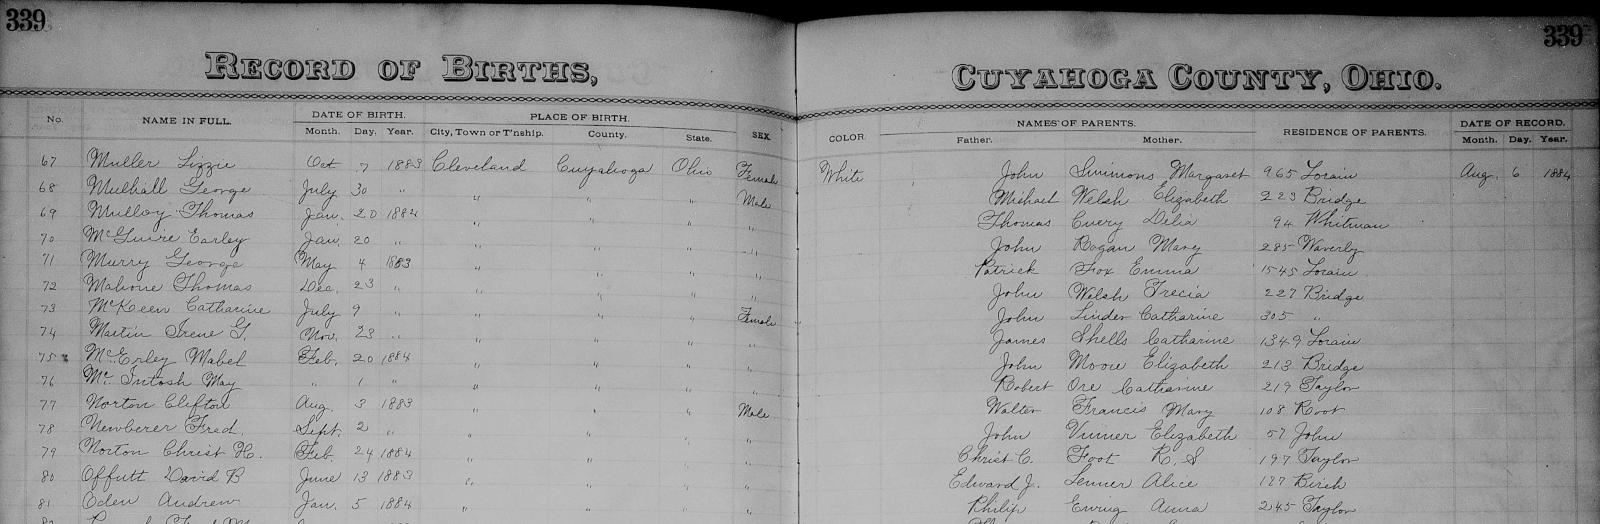 339 339
RECORD OF BIRTHS, CUYAHOGA COUNTY, OHIO.
No. NAME IN FULL. DATE OF BIRTH. PLACE OF BIRTH. SEX. COLOR. NAMES OF PARENTS. RESIDENCE OF PARENTS. DATE OF RECORD.
Month. Day. Year. City, Town or T'nship. County. State. Father. Mother. Month. Day. Year.
67 Muller Lizzie Oct 7 1883 Cleveland Cuyahoga Ohio Female White John Simmons Margaret 965 Lorain Aug. 6 1884
68 Mulhall George July 30 " " " " Male Michael Welsh Elizabeth 223 Bridge
69 Mulloy Thomas Jan. 20 1884 " " " " Thomas Cuery Delia 94 Whitman
70 McGuire Earley Jan. 20 " " " " " John Rogan Mary 285 Waverly
71 Murry George May 4 1883 " " " " Patrick Fox Emma 1545 Lorain
72 Malone Thomas Dec. 23 " " " " " John Welsh Trecia 227 Bridge
73 McKeen Catharine July 9 " " " " Female John Linder Catharine 305 "
74 Martin Irene G. Nov. 23 " " " " " James Shells Catharine 1349 Lorain
75 McErley Mabel Feb. 20 1884 " " " " John Moore Elizabeth 213 Bridge
76 Mc Intosh May " 1 " " " " " Robert Ore Catharine 219 Taylor
77 Norton Clifton Aug. 3 1883 " " " Male Walter Francis Mary 108 Root
78 Newberer Fred. Sept. 2 " " " " " John Elizabeth 57 John
79 Norton Christ H. Feb. 24 1884 " " " " Christ C. Foot R. S 197 Taylor
80 Offutt David B June 13 1883 " " " " Edward J. Lenner Alice 127 Birch
81 Oden Andrew Jan. 5 1884 " " " " Philip Ewing Anna 245 Taylor